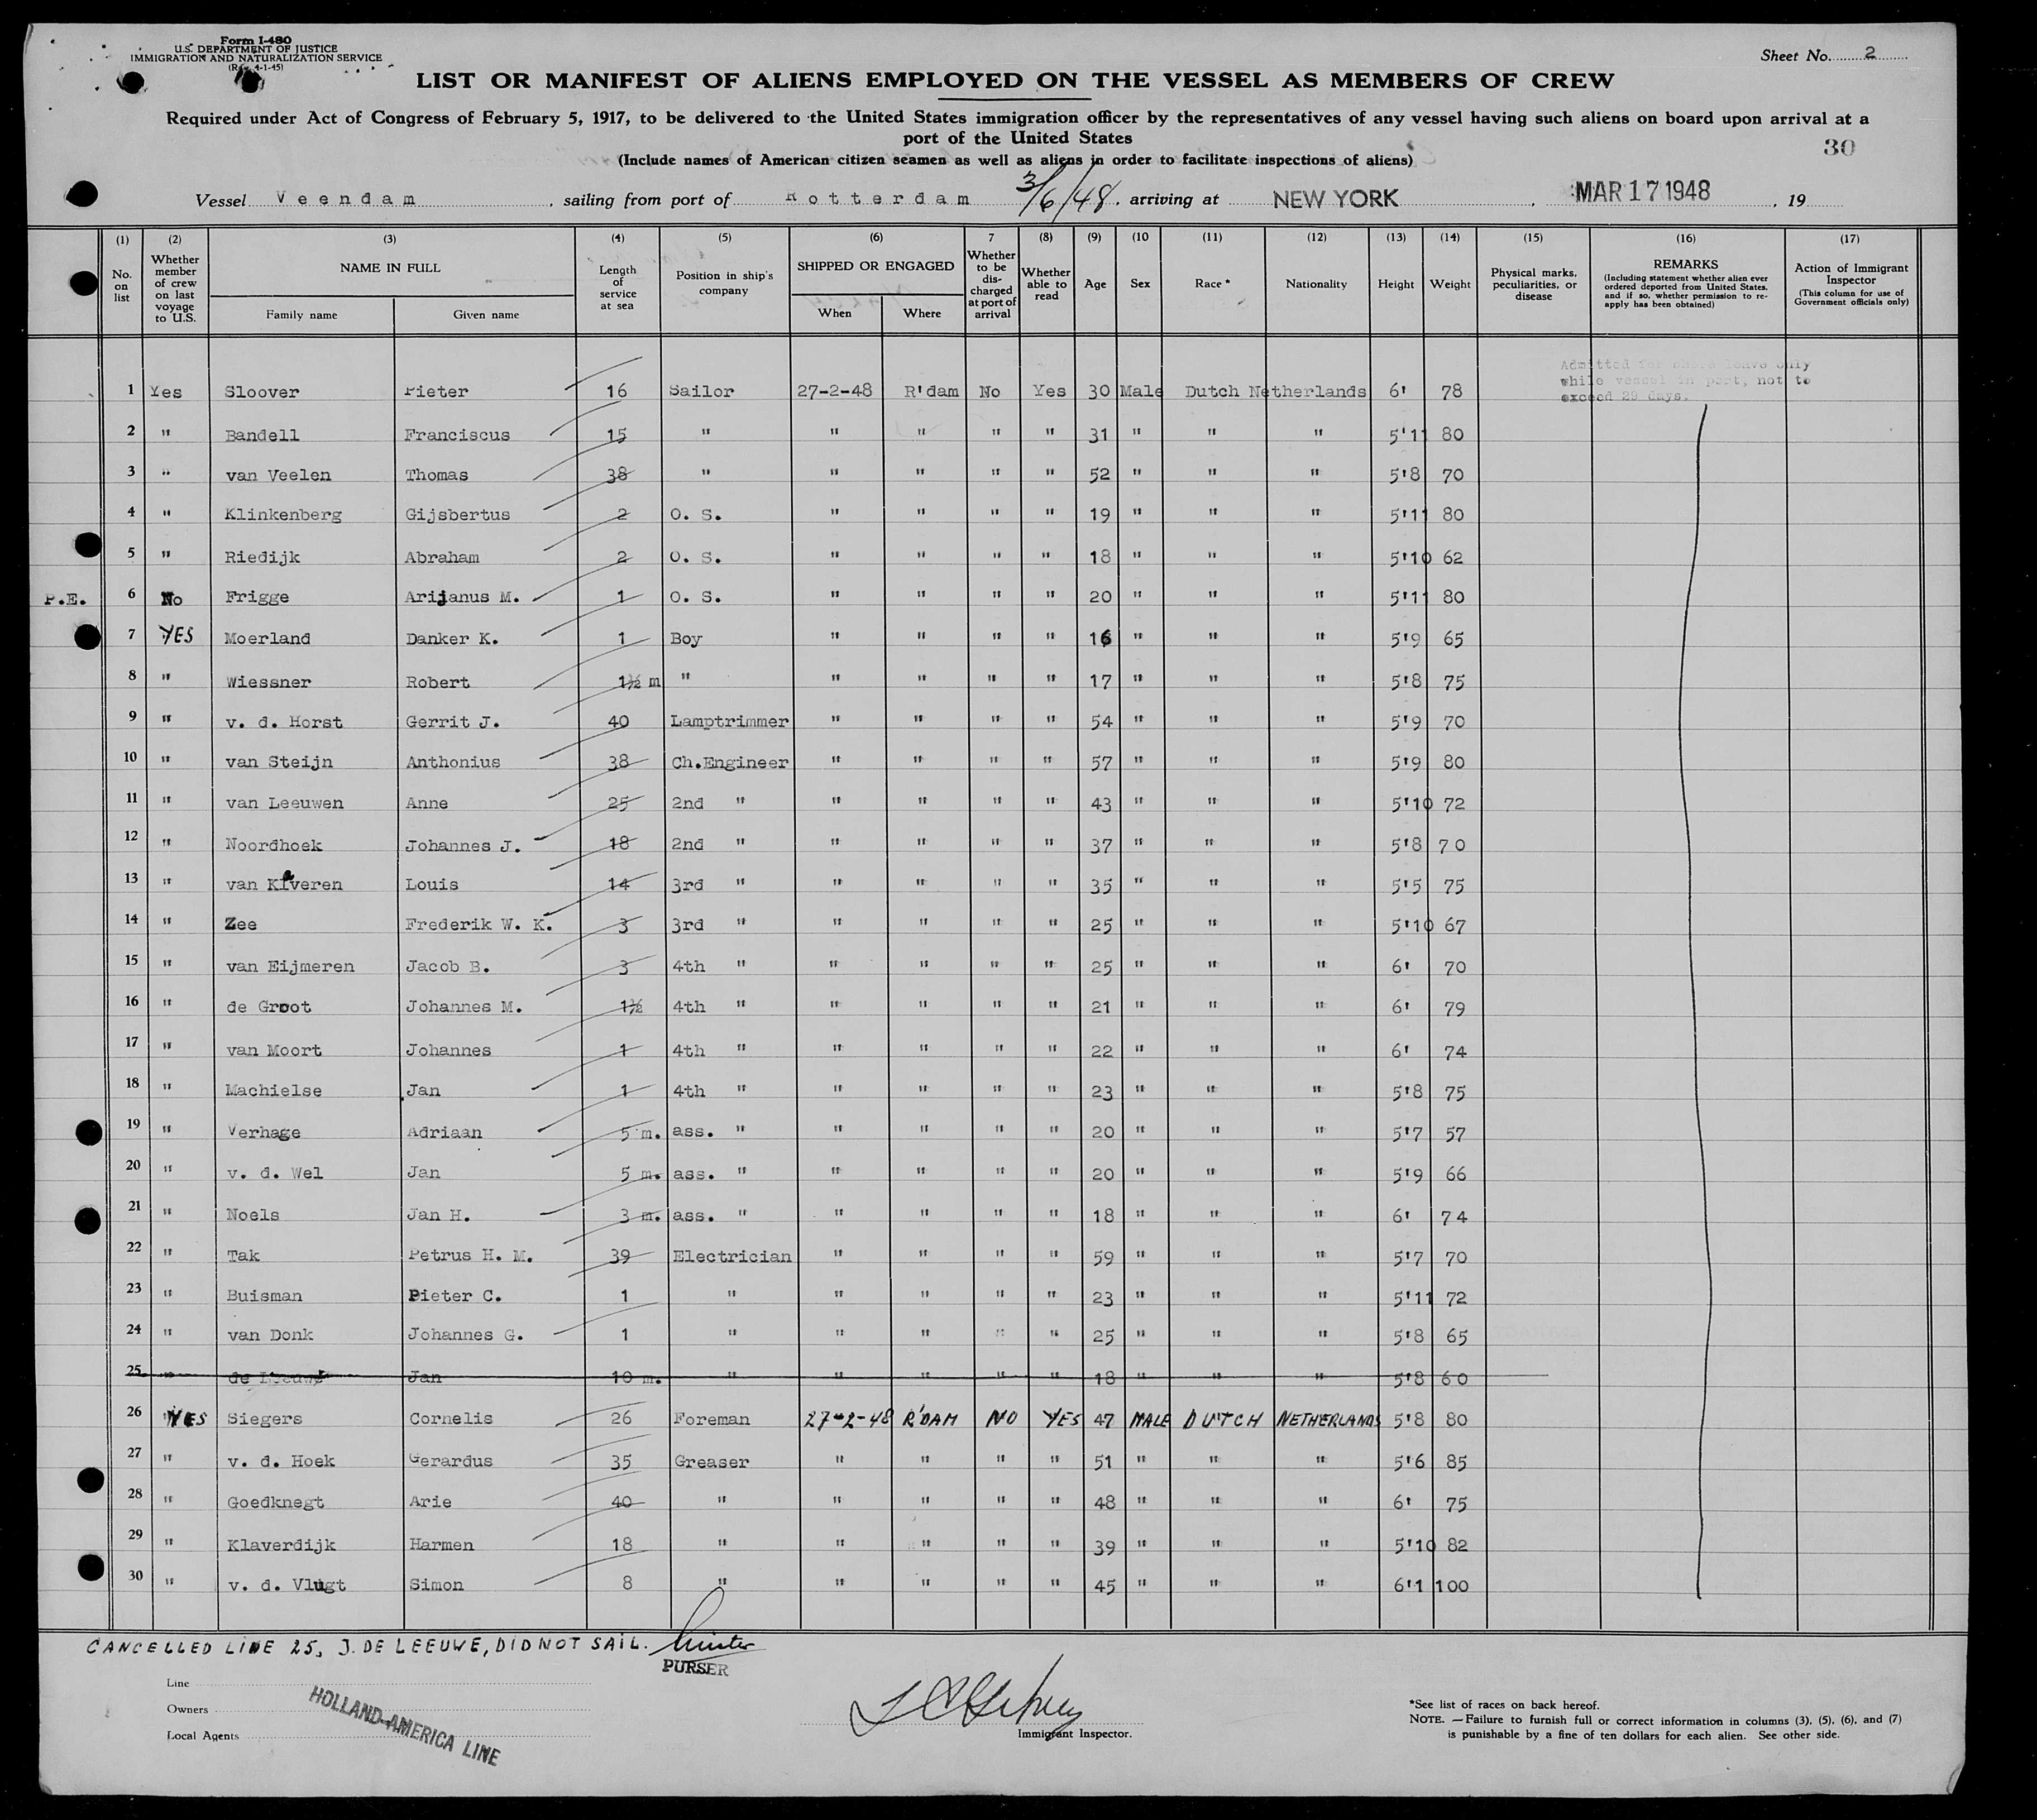 Form I-480
U.S. DEPARTMENT OF JUSTICE
IMMIGRATION AND NATURALIZATION SERVICE
(Rev. 4-1-45)
Sheet No. 2
LIST OR MANIFEST OF ALIENS EMPLOYED ON THE VESSEL AS MEMBERS OF CREW
Required under Act of Congress of February 5, 1917, to be delivered to the United States immigration officer by the representatives of any vessel having such aliens on board upon arrival at a
port of the United States
(Include names of American citizen seamen as well as aliens in order to facilitate inspections of aliens)
30
Vessel Veendam, sailing from port of Rotterdam 3/6/48, arriving at NEW YORK, MAR 17 1948, 19
(1) (2) (3) (4) (5) (6) 7 (8) (9) (10 (11) (12) (13) (14) (15) (16) (17)
No. on list Whether member of crew on last voyage to U.S. NAME IN FULL Family name Given name Length of service at sea Position in ship's company SHIPPED OR ENGAGED When Where Whether to be discharged at port of arrival Whether able to read Age Sex Race* Nationality Height Weight Physical marks, peculiarities, or disease REMARKS (Including statement whether alien ever ordered deported from United States, and if so, whether permission to re-apply has been obtained) Action of Immigrant Inspector (This column for use of Government officials only)
Admitted for shore leave only
while vessel in port, not to
exceed 29 days.
1 Yes Sloover Pieter 16 Sailor 27-2-48 R'dam No Yes 30 Male Dutch Netherlands 6' 78
2 " Bandell Franciscus 15 " " " " " 31 " " " 5'11 80
3 " van Veelen Thomas 38 " " " " " 52 " " " 5'8 70
4 " Klinkenberg Gijsbertus 2 O. S. " " " " 19 " " " 5'11 80
5 " Riedijk Abraham 2 O. S. " " " " 18 " " " 5'10 62
P.E. 6 No Frigge Arijanus M. 1 O. S. " " " " 20 " " " 5'11 80
7 YES Moerland Danker K. 1 Boy " " " " 16 " " " 5'9 65
8 " Wiessner Robert 1½ m " " " " " 17 " " " 5'8 75
9 " v. d. Horst Gerrit J. 40 Lamptrimmer " " " " 54 " " " 5'9 70
10 " van Steijn Anthonius 38 Ch.Engineer " " " " 57 " " " 5'9 80
11 " van Leeuwen Anne 25 2nd " " " " " 43 " " " 5'10 72
12 " Noordhoek Johannes J. 18 2nd " " " " " 37 " " " 5'8 70
13 " van Klaveren Louis 14 3rd " " " " " 35 " " " 5'5 75
14 " Zee Frederik W. K. 3 3rd " " " " " 25 " " " 5'10 67
15 " van Eijmeren Jacob B. 3 4th " " " " " 25 " " " 6' 70
16 " de Groot Johannes M. 1½ 4th " " " " " 21 " " " 6' 79
17 " van Moort Johannes 1 4th " " " " " 22 " " " 6' 74
18 " Machielse Jan 1 4th " " " " " 23 " " " 5'8 75
19 " Verhage Adriaan 5 m. ass. " " " " " 20 " " " 5'7 57
20 " v. d. Wel Jan 5 m. ass. " " " " " 20 " " " 5'9 66
21 " Noels Jan H. 3 m. ass. " " " " " 18 " " " 6' 74
22 " Tak Petrus H. M. 39 Electrician " " " " 59 " " " 5'7 70
23 " Buisman Pieter C. 1 " " " " " 23 " " " 5'11 72
24 " van Donk Johannes G. 1 " " " " " 25 " " " 5'8 65
25 " de Leeuwe Jan 10 m. " " " " " 18 " " " 5'8 60
26 YES Siegers Cornelis 26 Foreman 27-2-48 R'DAM NO YES 47 MALE DUTCH NETHERLANDS 5'8 80
27 " v. d. Hoek Gerardus 35 Greaser " " " " 51 " " " 5'6 85
28 " Goedknegt Arie 40 " " " " " 48 " " " 6' 75
29 " Klaverdijk Harmen 18 " " " " " 39 " " " 5'10 82
30 " v. d. Vlugt Simon 8 " " " " " 45 " " " 6'1 100
CANCELLED LINE 25, J. DE LEEUWE, DID NOT SAIL.
PURSER
Line
Owners
Local Agents
HOLLAND-AMERICA LINE
Immigrant Inspector.
*See list of races on back hereof.
NOTE. —Failure to furnish full or correct information in columns (3), (5), (6), and (7)
is punishable by a fine of ten dollars for each alien. See other side.